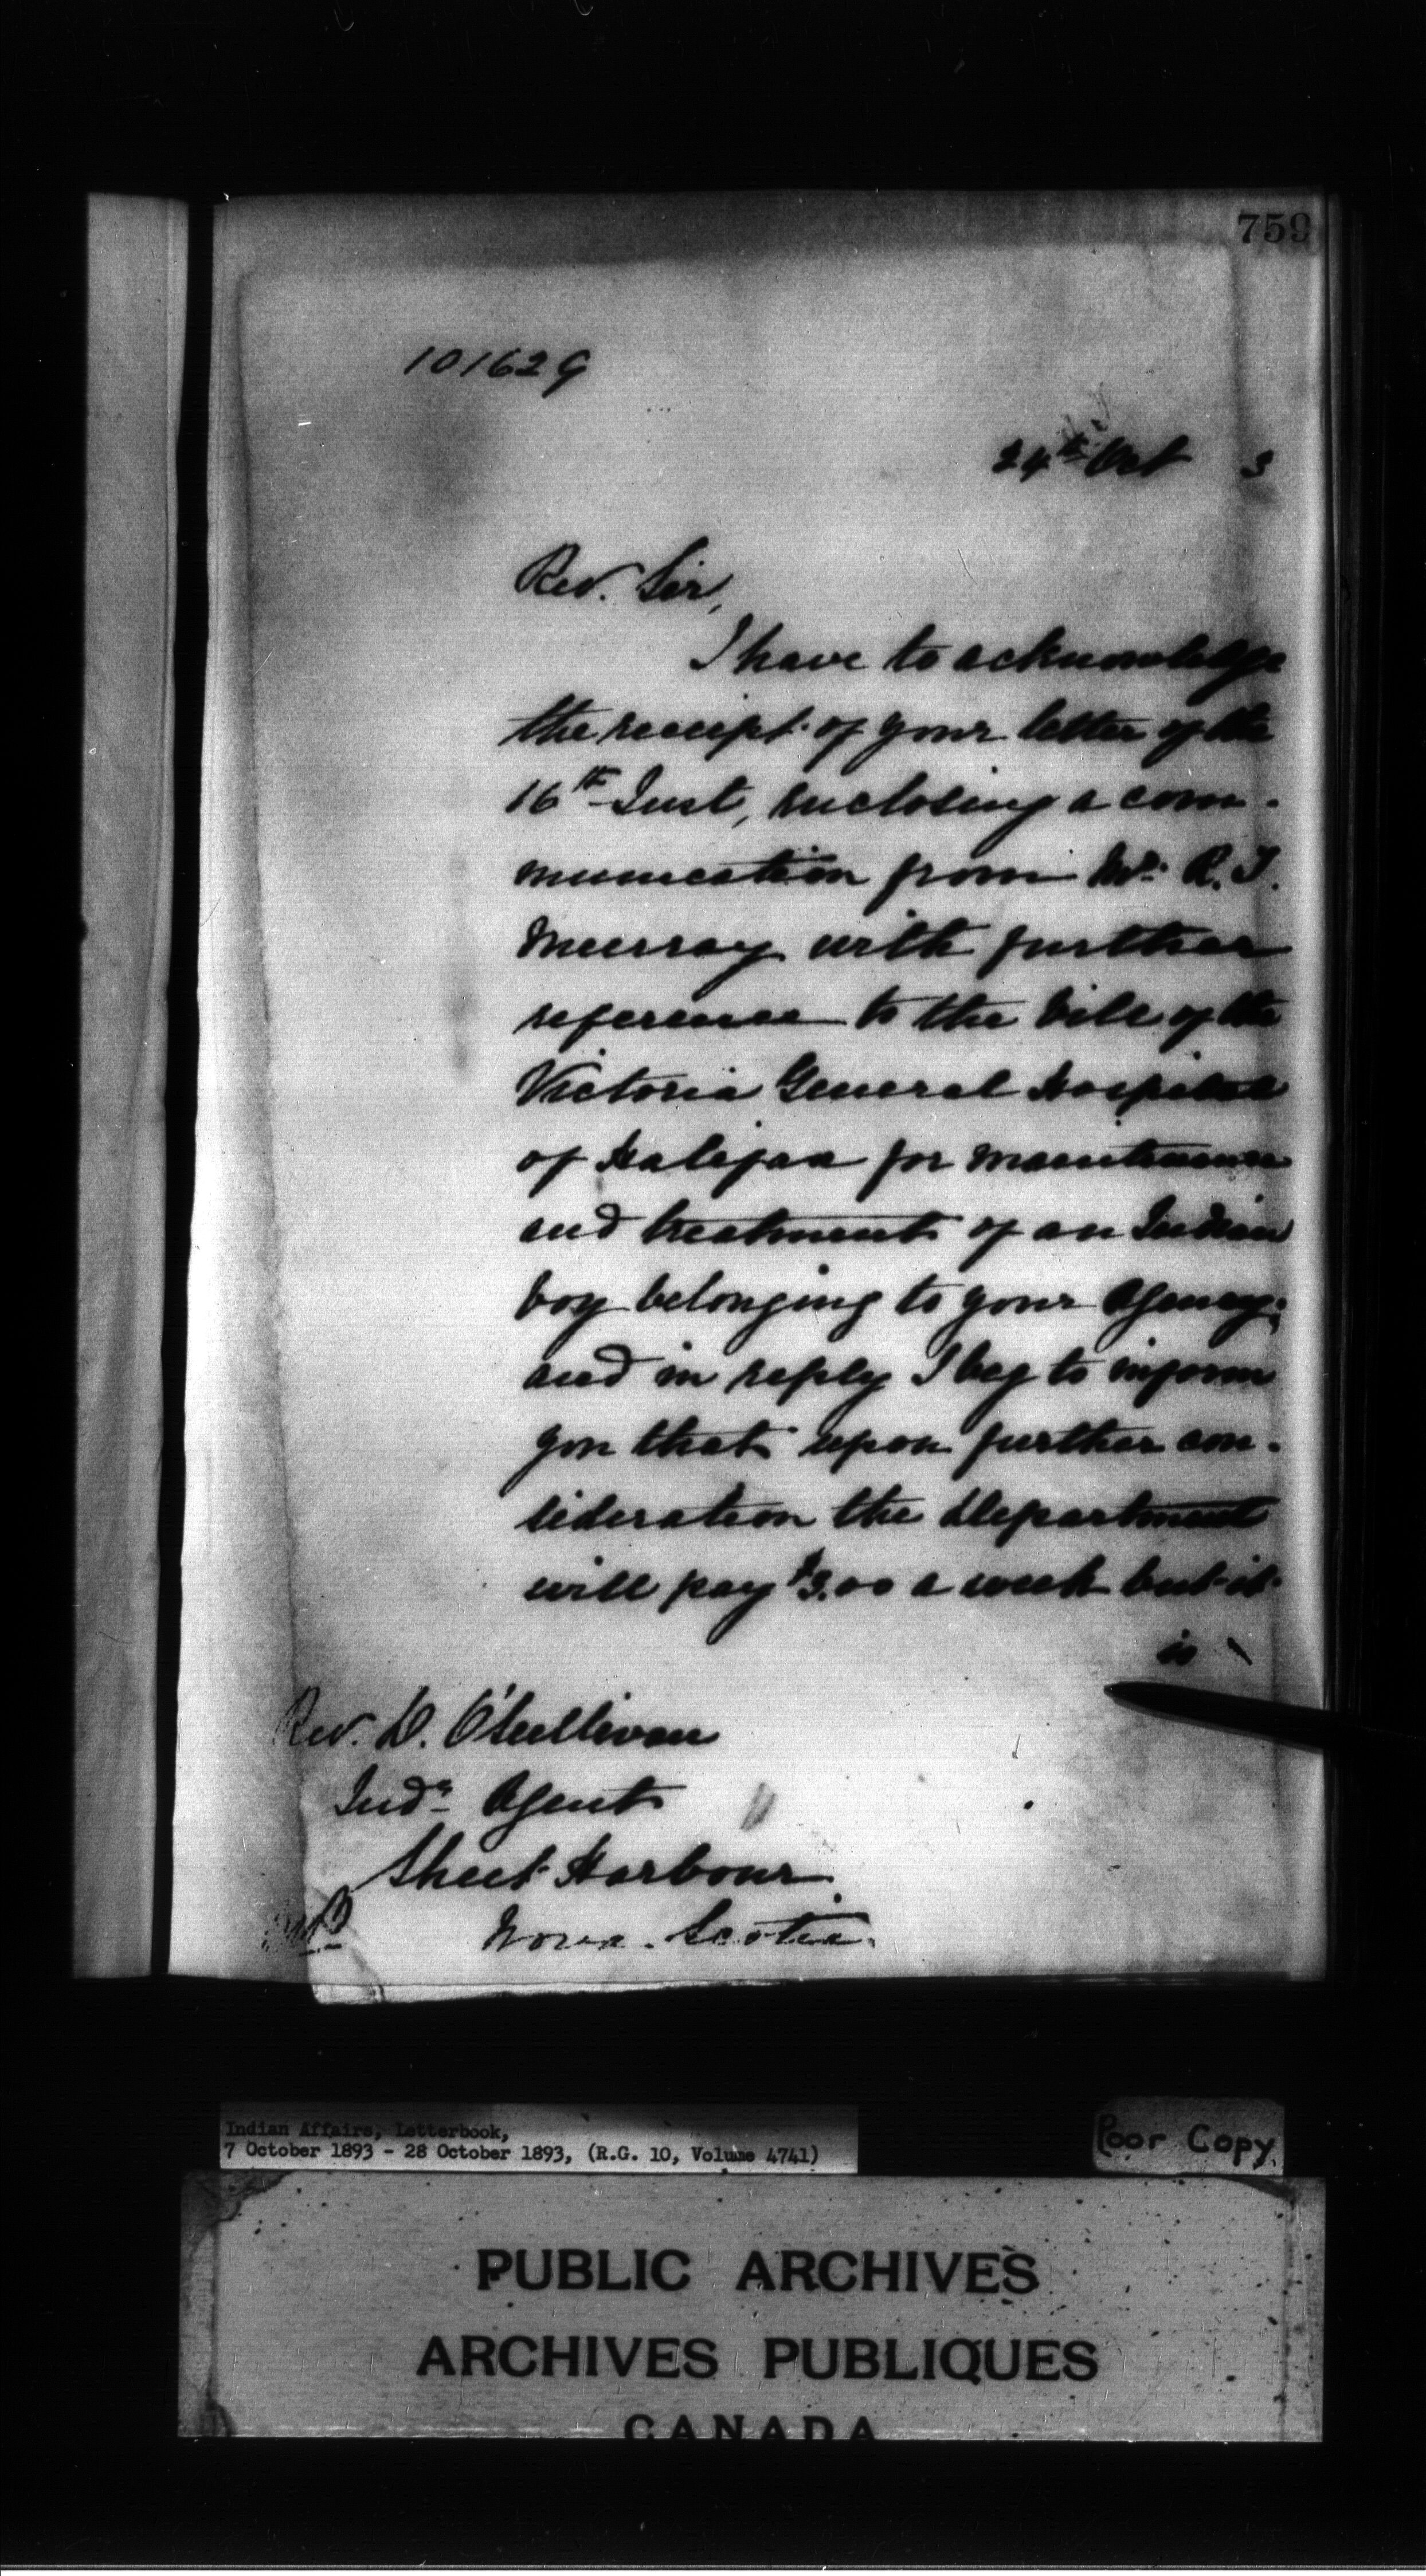 759
101629
24th Oct 3
Rev. Sir,
I have to acknowledge
the receipt of your letter of the
16th Inst, enclosing a com-
munication from Mr. R. J.
Murray with further
reference to the bill of the
Victoria General Hospital
of Halifax for maintenance
and treatment of an Indian
boy belonging to your Agency;
and in reply I beg to inform
you that upon further con-
sideration the Department
will pay $3.00 a week but it
is
Rev. D. O'Sullivan
Indn Agent
Sheet Harbour
Nova Scotia.
Indian Affairs, Letterbook,
7 October 1893 - 28 October 1893, (R.G. 10, Volume 4741)
Poor Copy.
PUBLIC ARCHIVES
ARCHIVES PUBLIQUES
CANADA